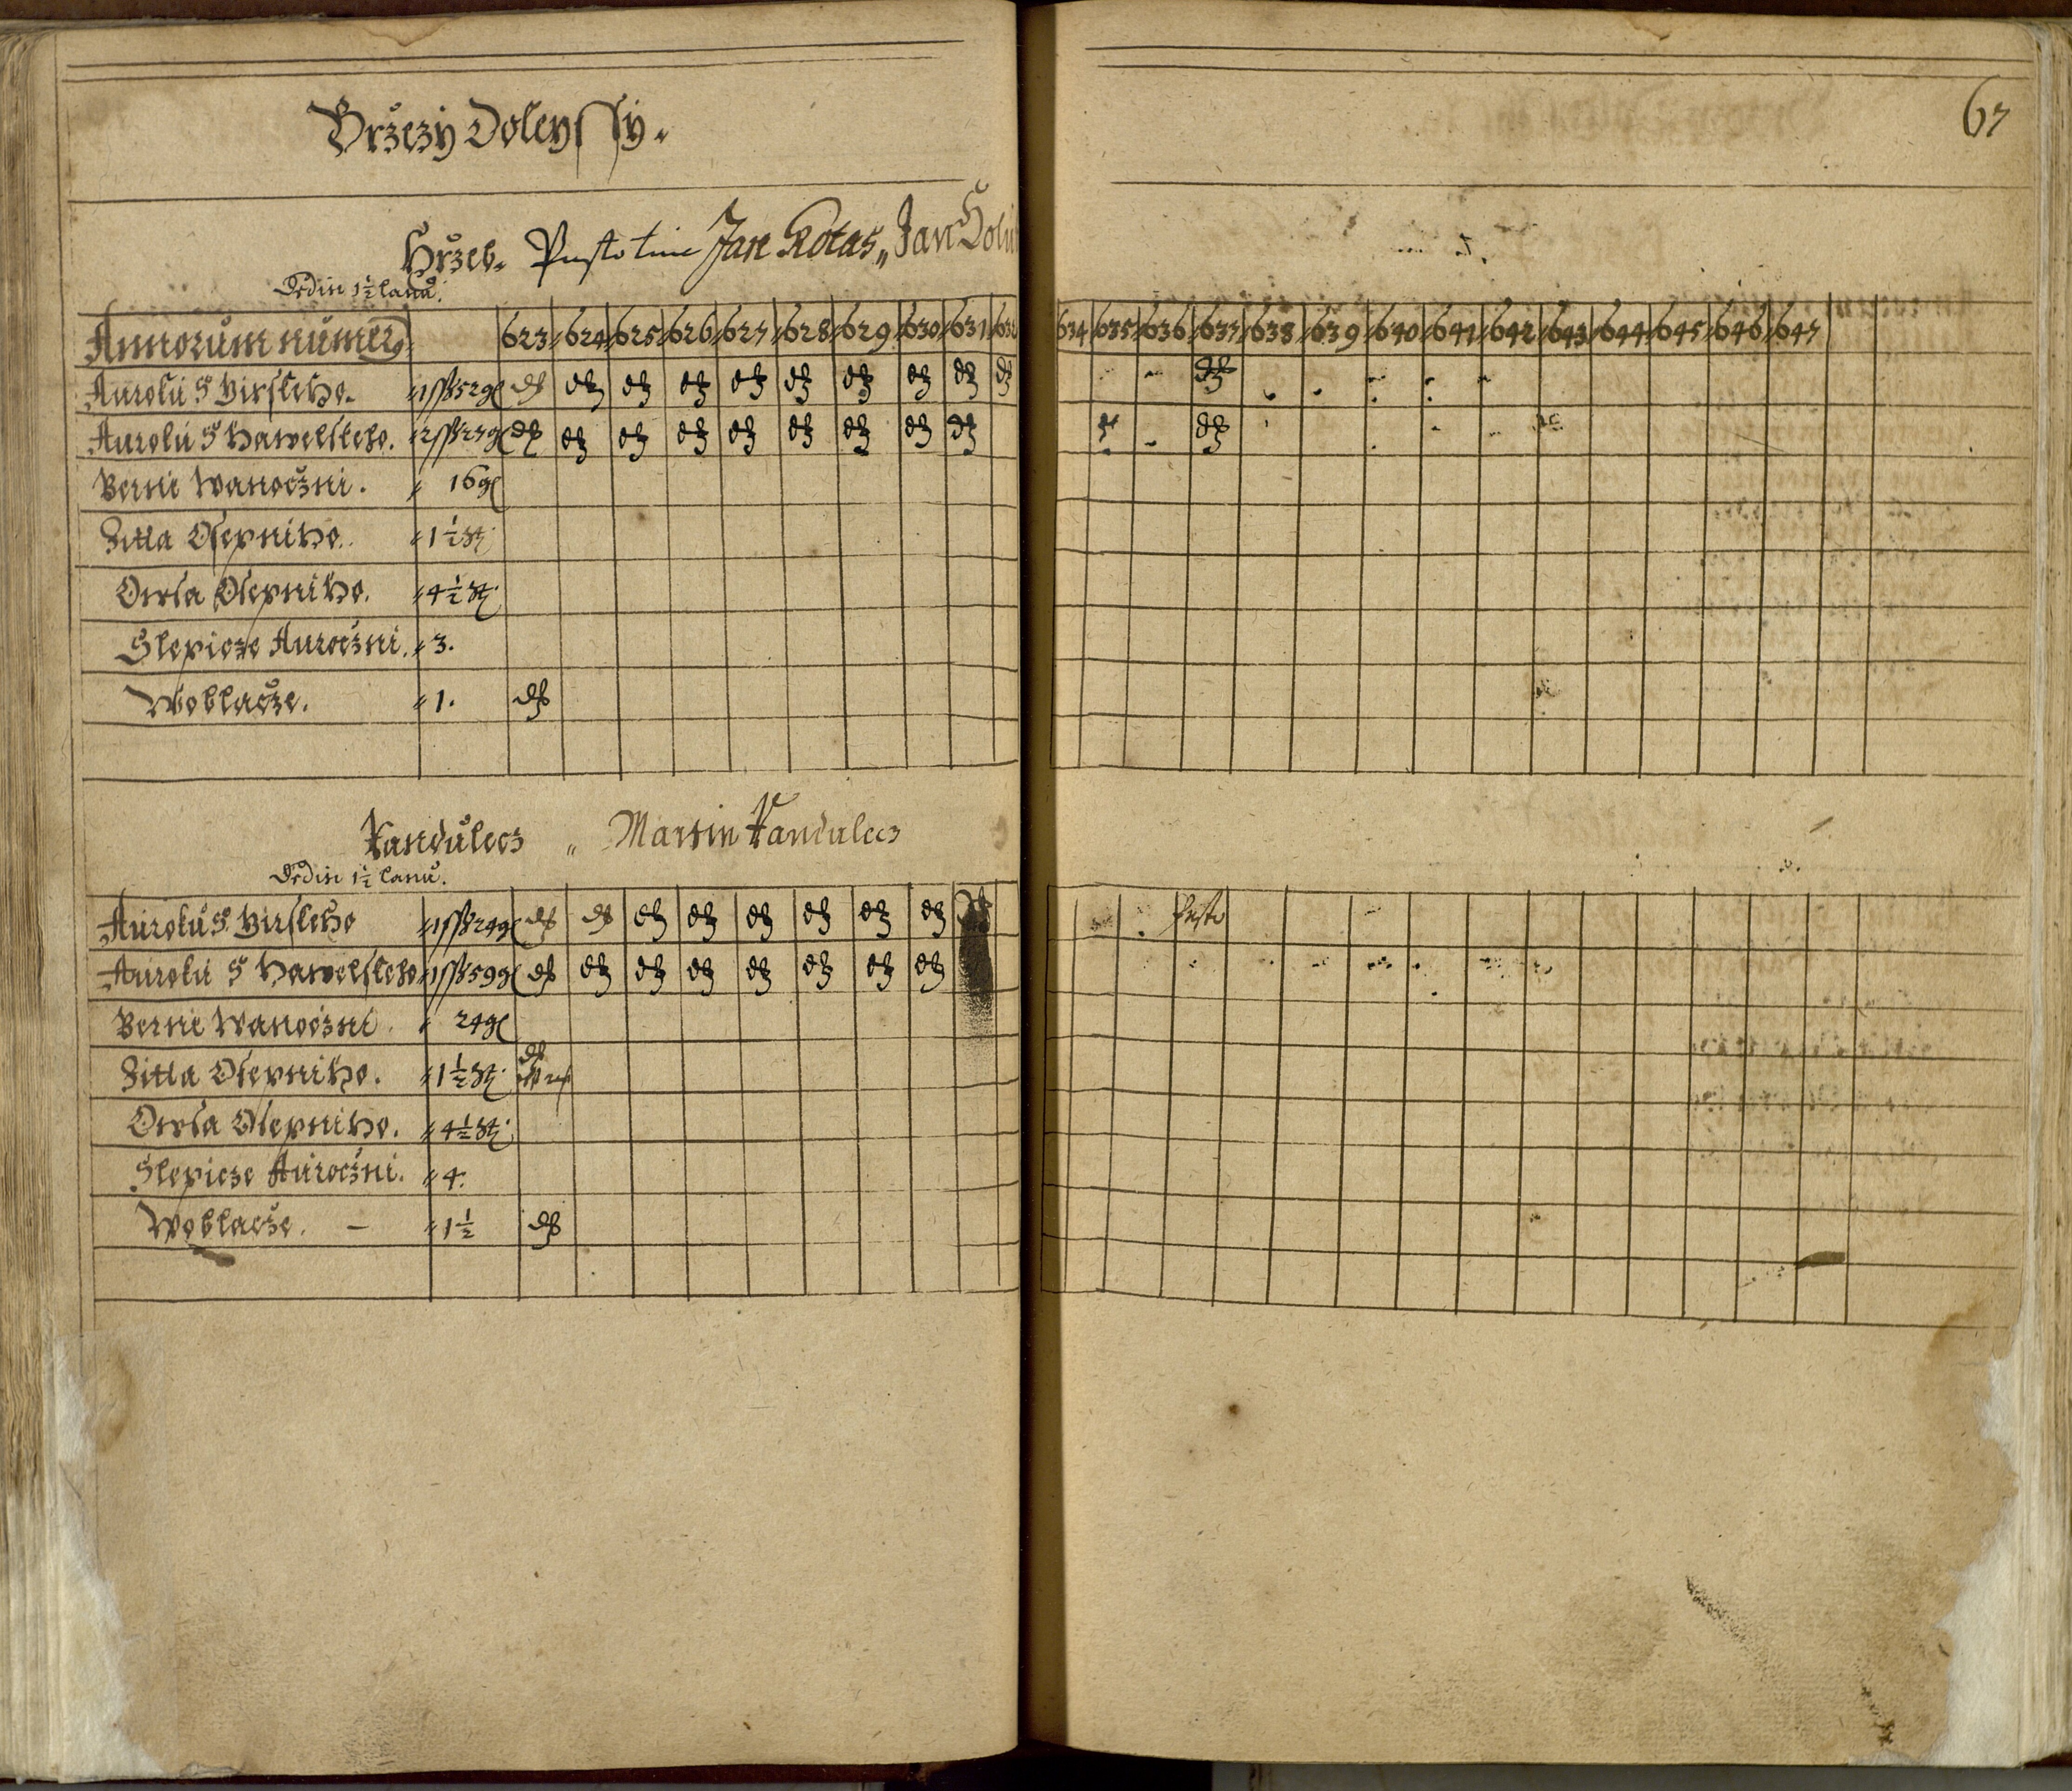 Bržezy Doleyssy.
67
Hržeb. Pustotine Jan Kotas, Jan Holu
Ordin 1½ lanu.
Annorum numer 623 624 625 626 627 628 629 630 631 634 635 636 637 638 639 640 641 642 643 644 645 646 647
Auroku S Girskeho. 1 ss 52 g dt dt dt dt dt dt dt dt dt dt dt
Auroku S Hawelskeho. 2 ss 27 g dt dt dt dt dt dt dt dt dt dt
Berni Wanoczni. 16 g
Zitta Osepniho. 1½ st
Owsa Osepniho. 4½ st
Slepicze Auroczni. 3.
Woblacze. 1. dt
Kandulecz „ Martin Kandulecz
Ordin 1½ lanu.
Auroku S. Girskeho 1 ss 24 g dt dt dt dt dt dt dt dt Pusto
Auroku S Hawelskeho 1 ss 59 g dt dt dt dt dt dt dt dt
Berni Wanoczni. 24 g
Zitta Osepniho. 1½ st dt
Owsa Osepniho. 4½ st
Slepicze Auroczni. 4.
Woblacze. – 1½ dt